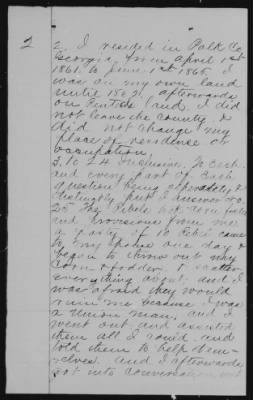 2
2. I resided in Polk Co
Georgia from April 1st
1861 to June 1st 1865. I
was on my own land
until 1862. afterwards
on rented land. I did
not leave the county, &
did not change my
place of residence or
occupation.
3. to 24 inclusive, To each
and every part of each
question being separately &
distinctly put I answer no.
25 The Rebels got corn, fodder
and provisions from me
a party of 10 Rebs came
to my house one day &
began to throw out my
corn & fodder, & scatter
everything about and I
was afraid they would
ruin me because I was
a Union man, and I
went out and assisted
them all I could and
told them to help them-
selves. and I afterwards
got into conversation with